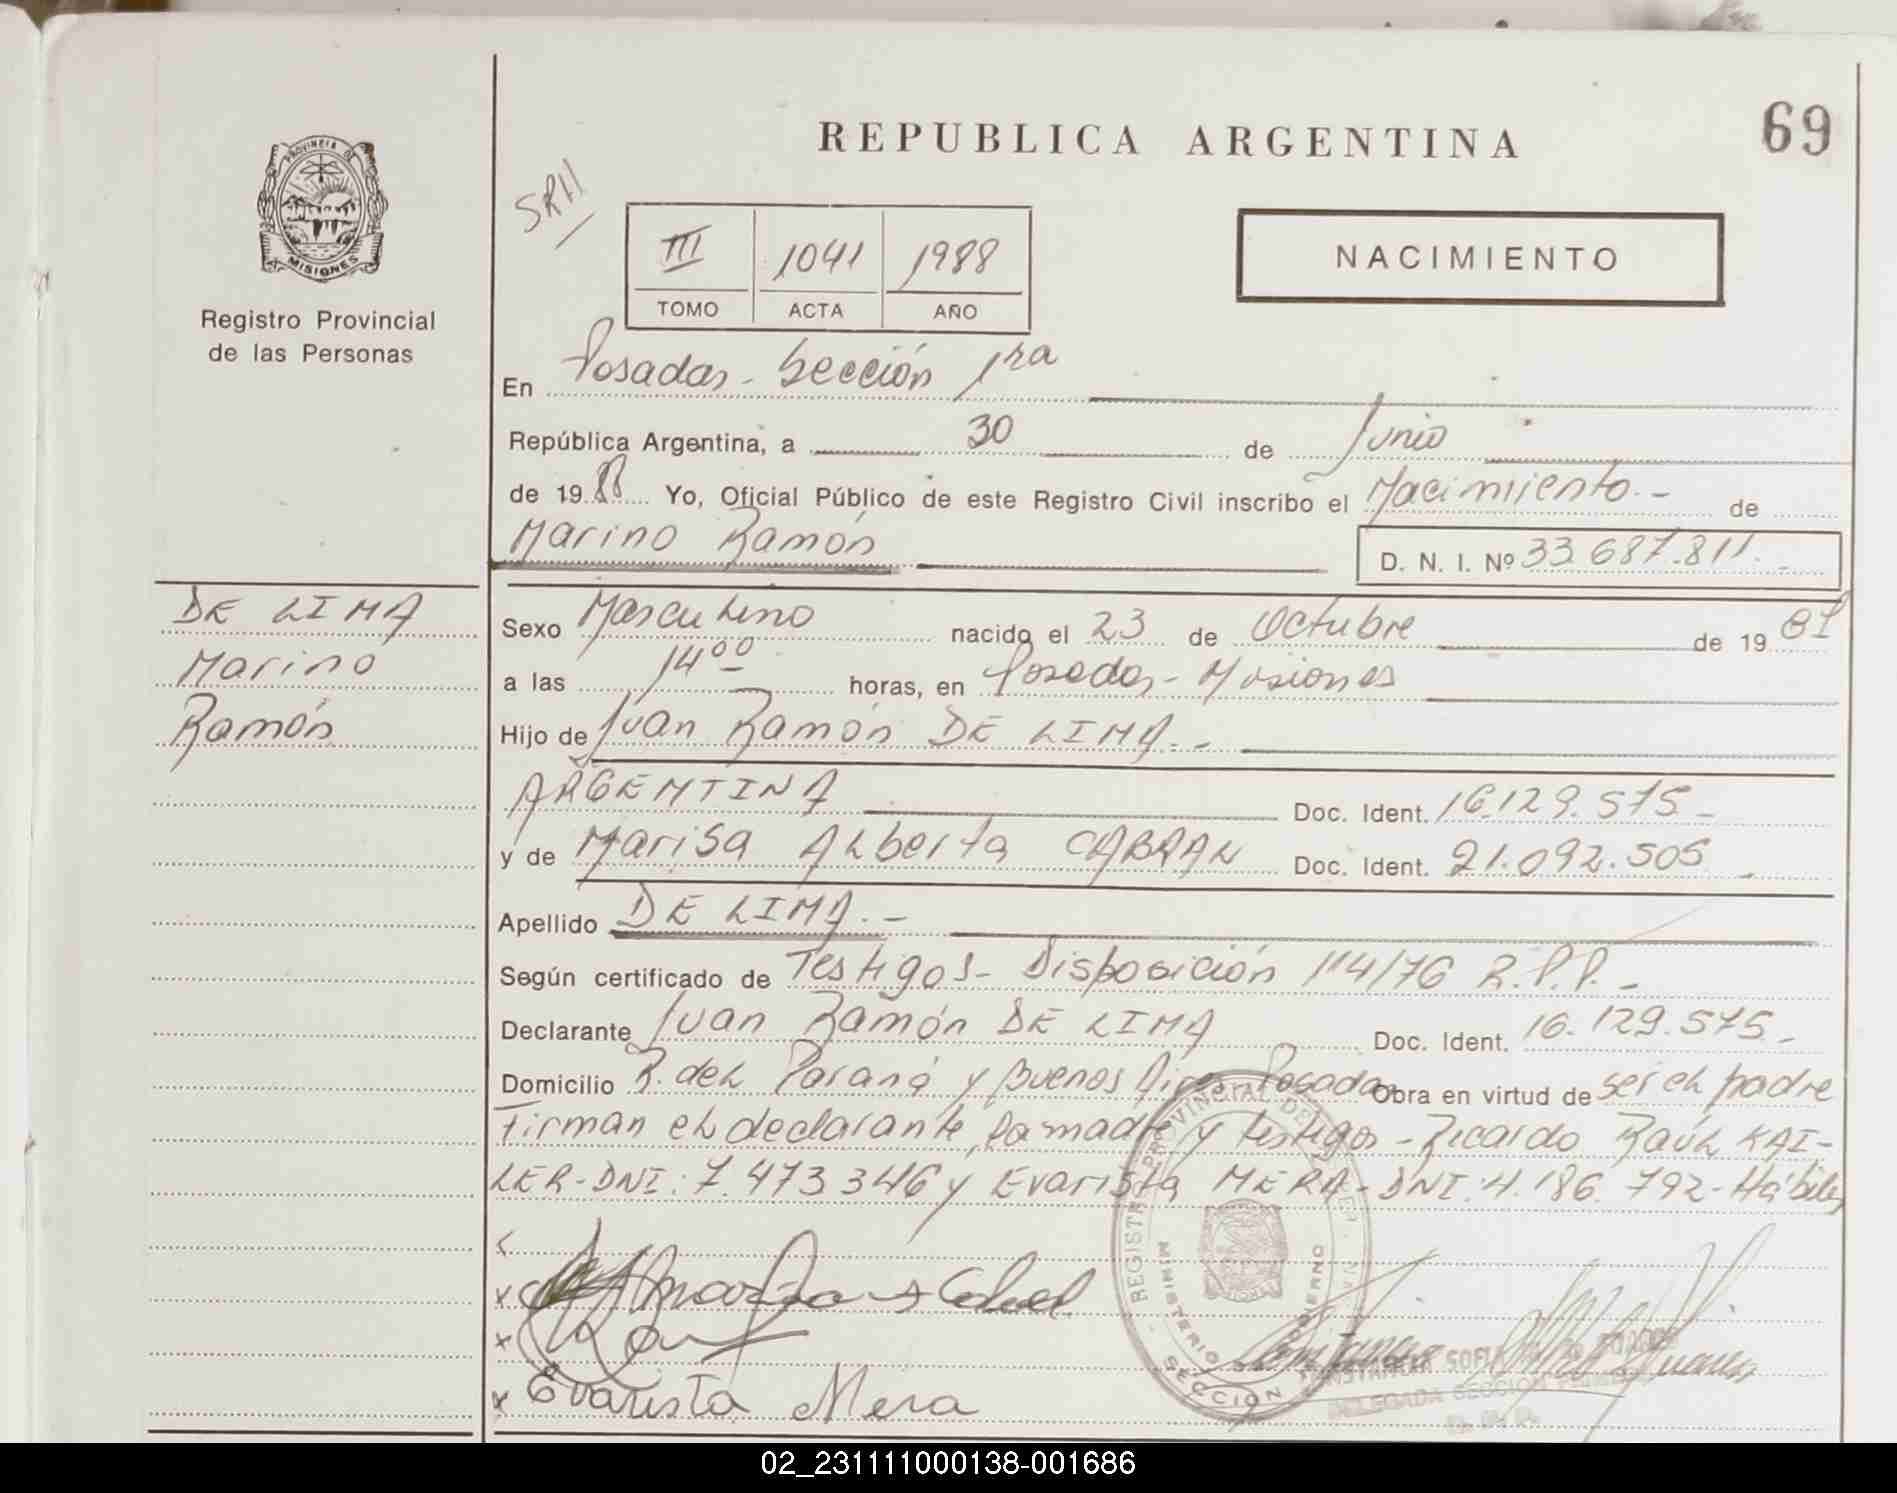 69
REPUBLICA ARGENTINA
PROVINCIA DE
MISIONES
Registro Provincial
de las Personas
SRH
III 1041 1988
TOMO ACTA AÑO
NACIMIENTO
En Posadas - Sección 1ra
República Argentina, a 30 de Junio
de 1988 Yo, Oficial Público de este Registro Civil inscribo el Nacimiento.- de
Marino Ramón D. N. I. Nº 33.687.811.-
DE LIMA
Marino
Ramón
Sexo Masculino nacido el 23 de Octubre de 1981
a las 14⁰⁰ horas, en Posadas - Misiones
Hijo de Juan Ramón DE LIMA.-
ARGENTINA Doc. Ident. 16.129.575-
y de Marisa Alberta CABRAL Doc. Ident. 21.092.505.-
Apellido DE LIMA.-
Según certificado de Testigos- Disposición 114/76 R.P.P.-
Declarante Juan Ramón DE LIMA Doc. Ident. 16.129.575.-
Domicilio R. del Paraná y Buenos Aires Posadas Obra en virtud de ser el padre
Firman el declarante, la madre y testigos - Ricardo Raúl KAI-
LER-DNI: 7.473346 y Evarista MERA - DNI: 4.186.792- Hábiles
x
x
x Evarista Mera
REGISTRO PROVINCIAL DE
MINISTERIO GOBIERNO
SECCION
SOFIA
DELEGADA SECCION
02_231111000138-001686